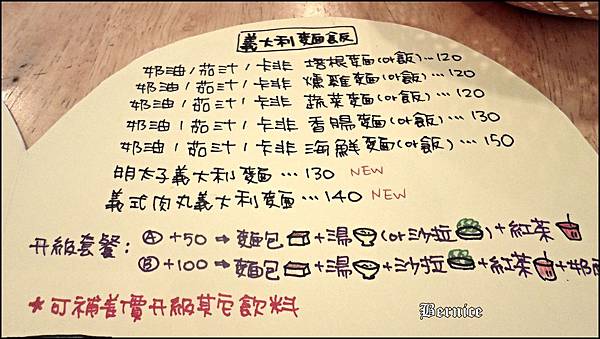 義大利麵飯
奶油/茄汁/卡非 塔根麵(or飯)...120
奶油/茄汁/卡非 燻雞麵(or飯)...120
奶油/茄汁/卡非 蔬菜麵(or飯)...120
奶油/茄汁/卡非 香腸麵(or飯)...130
奶油/茄汁/卡非 海鮮麵(or飯)...150
明太子義大利麵...130 NEW
義式肉丸義大利麵...140 NEW
升級套餐: Ⓐ +50 → 麵包+湯(or沙拉)+紅茶
Ⓑ +100 → 麵包+湯+沙拉+紅茶+奶
*可補差價升級其它飲料
Bernice